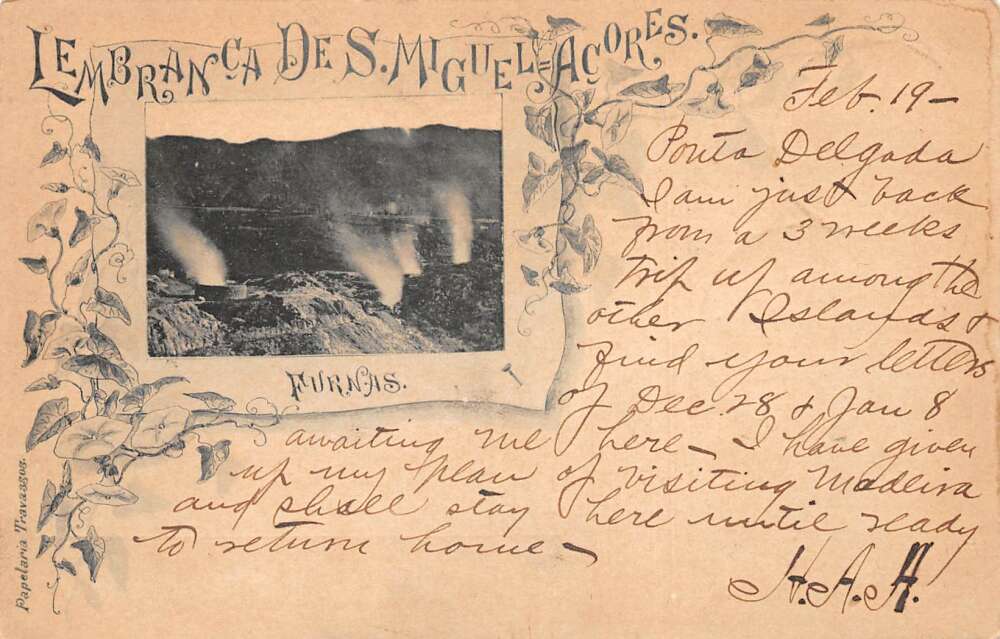 LEMBRANÇA DE S. MIGUEL=AÇORES.
Feb. 19 –
Ponta Delgada
I am just back
from a 3 weeks
trip up among the
other Islands &
find your letters
of Dec 28 & Jan 8
awaiting me here – I have given
up my plan of visiting Madeira
and shall stay here until ready
to return home –
H. A. H.
FURNAS.
Papelaria Travassos.